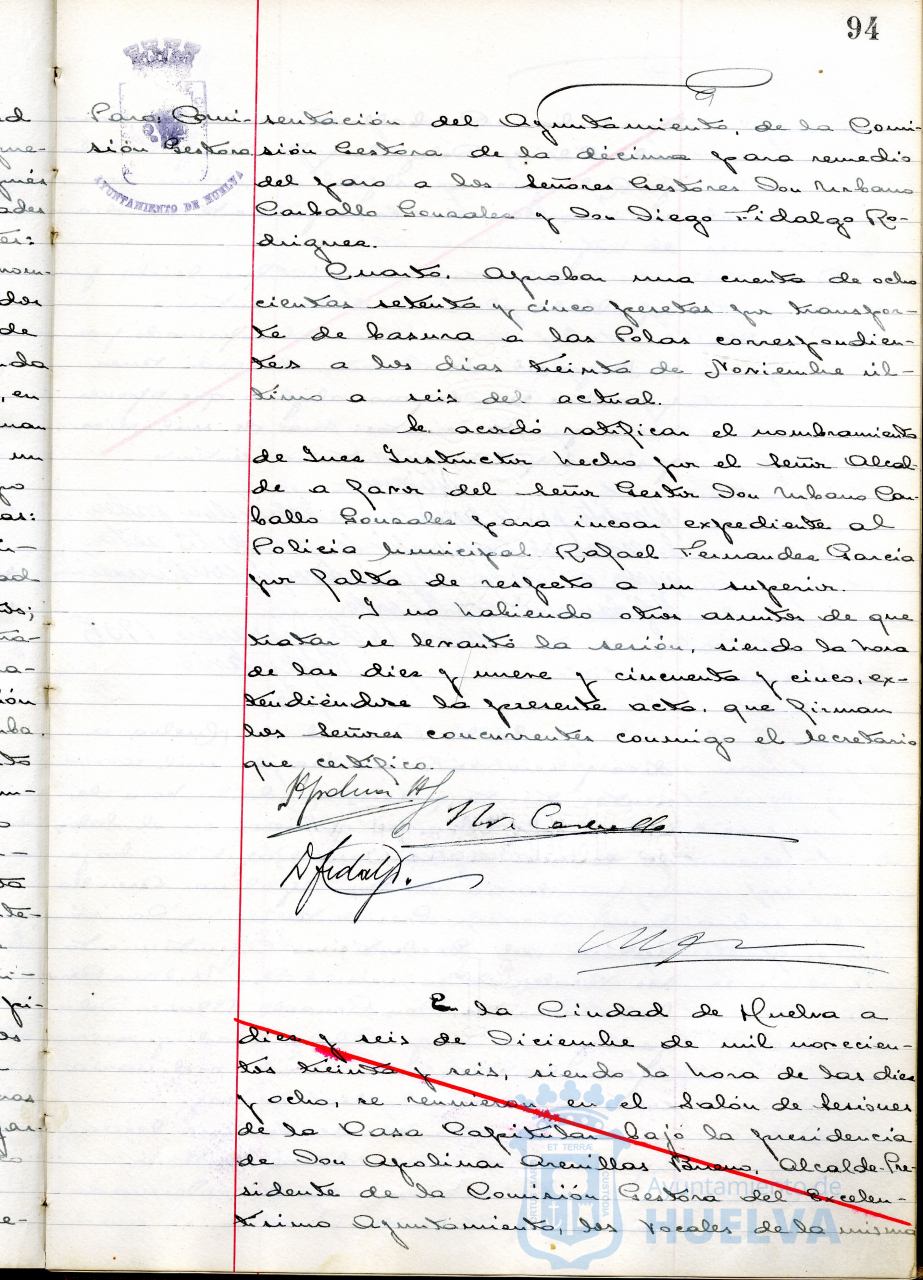 94
AYUNTAMIENTO DE HUELVA
Paro: Comi-
sión Gestora
sentación del Ayuntamiento, de la Comi
sión Gestora de la décima para remedio
del paro a los Señores Gestores Don Urbano
Carballo Gonzalez y Don Diego Fidalgo Ro-
driguez.
Cuarto. Aprobar una cuenta de ocho
cientas setenta y cinco pesetas por transpor-
te de basura a las Polas correspondien-
tes a los días treinta de Noviembre úl-
timo a seis del actual.
Se acordó ratificar el nombramiento
de Juez Instructor hecho por el Señor Alcal-
de a favor del Señor Gestor Don Urbano Car-
ballo Gonzalez para incoar expediente al
Policia Municipal Rafael Fernandez García
por falta de respeto a un superior.
Y no habiendo otros asuntos de que
tratar se levantó la sesión, siendo la hora
de las diez y nueve y cincuenta y cinco, ex-
tendiéndose la presente acta, que firman
los Señores concurrentes conmigo el Secretario
que certifico.
D Fidalgo.
En la Ciudad de Huelva a
diez y seis de Diciembre de mil novecien-
tos treinta y seis, siendo la hora de las diez
y ocho, se reunieron en el Salón de Sesiones
de la Casa Capitular bajo la presidencia
de Don Apolinar Arenillas Bueno, Alcalde-Pre-
sidente de la Comisión Gestora del Excelen-
tísimo Ayuntamiento, los Vocales de la misma
Ayuntamiento de
HUELVA